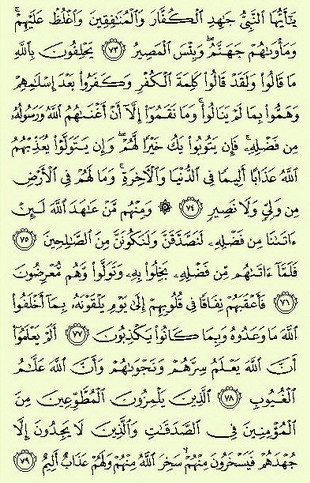 يَٰٓأَيُّهَا ٱلنَّبِيُّ جَٰهِدِ ٱلۡكُفَّارَ وَٱلۡمُنَٰفِقِينَ وَٱغۡلُظۡ عَلَيۡهِمۡۚ
وَمَأۡوَىٰهُمۡ جَهَنَّمُۖ وَبِئۡسَ ٱلۡمَصِيرُ ٧٣ يَحۡلِفُونَ بِٱللَّهِ
مَا قَالُواْ وَلَقَدۡ قَالُواْ كَلِمَةَ ٱلۡكُفۡرِ وَكَفَرُواْ بَعۡدَ إِسۡلَٰمِهِمۡ
وَهَمُّواْ بِمَا لَمۡ يَنَالُواْۚ وَمَا نَقَمُوٓاْ إِلَّآ أَنۡ أَغۡنَىٰهُمُ ٱللَّهُ وَرَسُولُهُۥ
مِن فَضۡلِهِۦۚ فَإِن يَتُوبُواْ يَكُ خَيۡرٗا لَّهُمۡۖ وَإِن يَتَوَلَّوۡاْ يُعَذِّبۡهُمُ
ٱللَّهُ عَذَابًا أَلِيمٗا فِي ٱلدُّنۡيَا وَٱلۡأٓخِرَةِۚ وَمَا لَهُمۡ فِي ٱلۡأَرۡضِ
مِن وَلِيّٖ وَلَا نَصِيرٖ ٧٤ ۞ وَمِنۡهُم مَّنۡ عَٰهَدَ ٱللَّهَ لَئِنۡ
ءَاتَىٰنَا مِن فَضۡلِهِۦ لَنَصَّدَّقَنَّ وَلَنَكُونَنَّ مِنَ ٱلصَّٰلِحِينَ ٧٥
فَلَمَّآ ءَاتَىٰهُم مِّن فَضۡلِهِۦ بَخِلُواْ بِهِۦ وَتَوَلَّواْ وَّهُم مُّعۡرِضُونَ
٧٦ فَأَعۡقَبَهُمۡ نِفَاقٗا فِي قُلُوبِهِمۡ إِلَىٰ يَوۡمِ يَلۡقَوۡنَهُۥ بِمَآ أَخۡلَفُواْ
ٱللَّهَ مَا وَعَدُوهُ وَبِمَا كَانُواْ يَكۡذِبُونَ ٧٧ أَلَمۡ يَعۡلَمُوٓاْ
أَنَّ ٱللَّهَ يَعۡلَمُ سِرَّهُمۡ وَنَجۡوَىٰهُمۡ وَأَنَّ ٱللَّهَ عَلَّٰمُ
ٱلۡغُيُوبِ ٧٨ ٱلَّذِينَ يَلۡمِزُونَ ٱلۡمُطَّوِّعِينَ مِنَ
ٱلۡمُؤۡمِنِينَ فِي ٱلصَّدَقَٰتِ وَٱلَّذِينَ لَا يَجِدُونَ إِلَّا
جُهۡدَهُمۡ فَيَسۡخَرُونَ مِنۡهُمۡ سَخِرَ ٱللَّهُ مِنۡهُمۡ وَلَهُمۡ عَذَابٌ أَلِيمٌ ٧٩